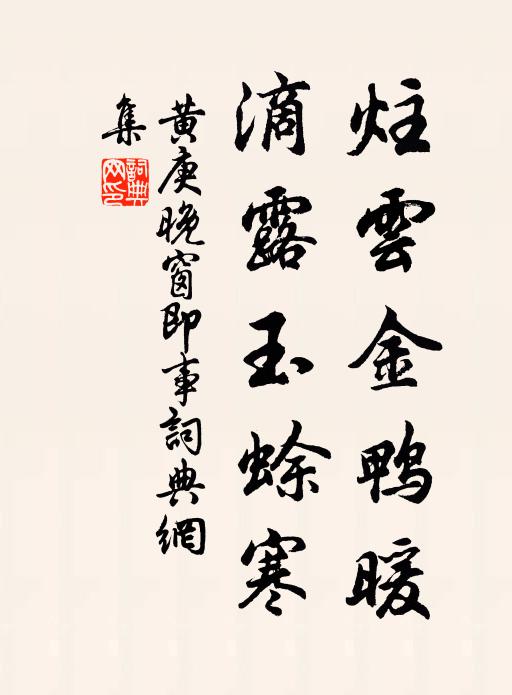 炷雲金鴨暖
滴露玉蜍寒
黄庚晚窗即事詞典網
集
詞典
网印